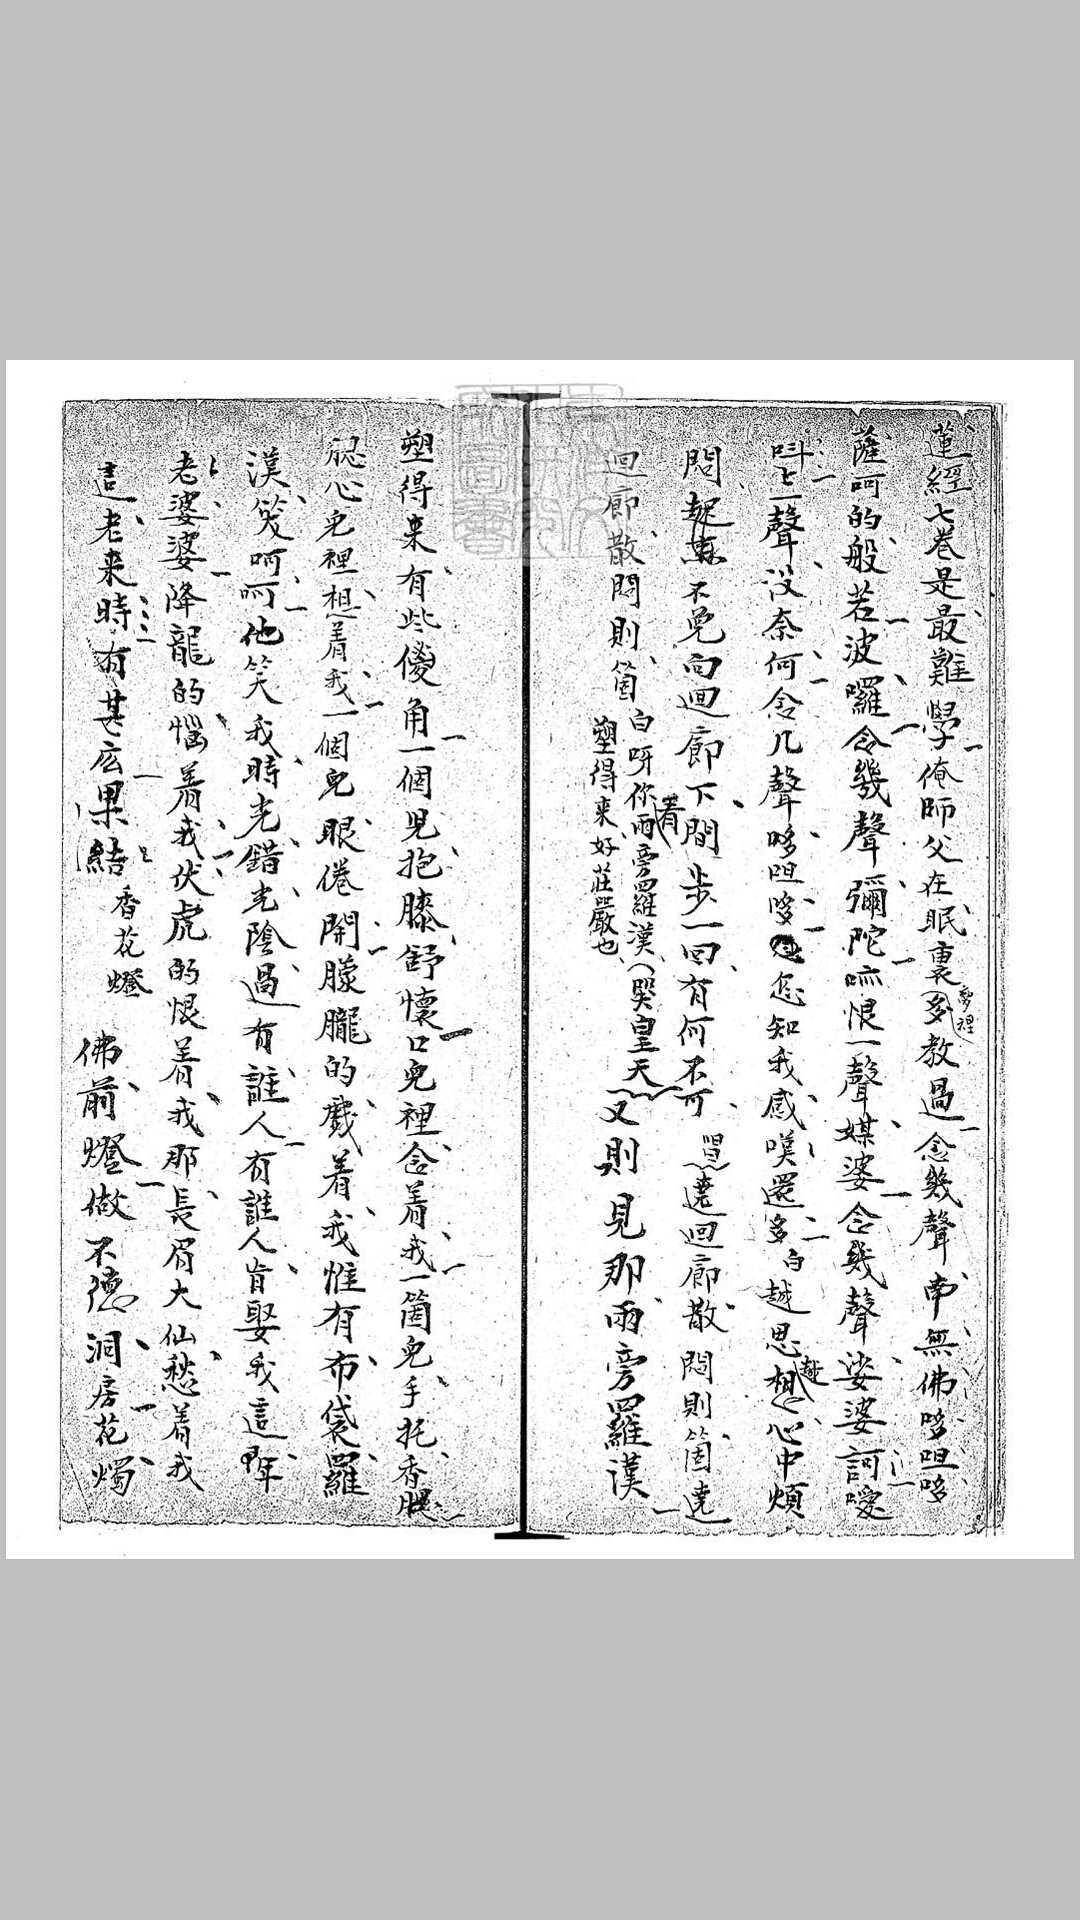 蓮經七卷是最難學俺師父在眠裏夢裡多教過念幾聲南無佛哆呾哆
薩呵的般若波囉念幾聲彌陀𠰷恨一聲媒婆念幾聲娑婆訶噯
叫上一聲没奈何念几聲哆呾哆怎知我感嘆還多白越思越想心中煩
悶起來不免向迴廊下閒步一回有何不可唱遶迴廊散悶則箇遶
迴廊散悶則箇白呀你看兩旁羅漢
塑得來好莊嚴也
哭皇天又則見那兩旁羅漢
塑得來有些傻角一個兒抱膝舒懷口兒裡念着我一箇兒手托香腮
腮心兒裡想着我一個兒眼倦開朦朧的戲着我惟有布袋羅
漢笑呵呵他笑我時光錯光陰過有誰人有誰人肯娶我這年
老婆婆降龍的惱着我伏虎的恨着我那長眉大仙愁着我
這老来時有甚庅果結 香花燈 佛前燈做不德洞房花燭